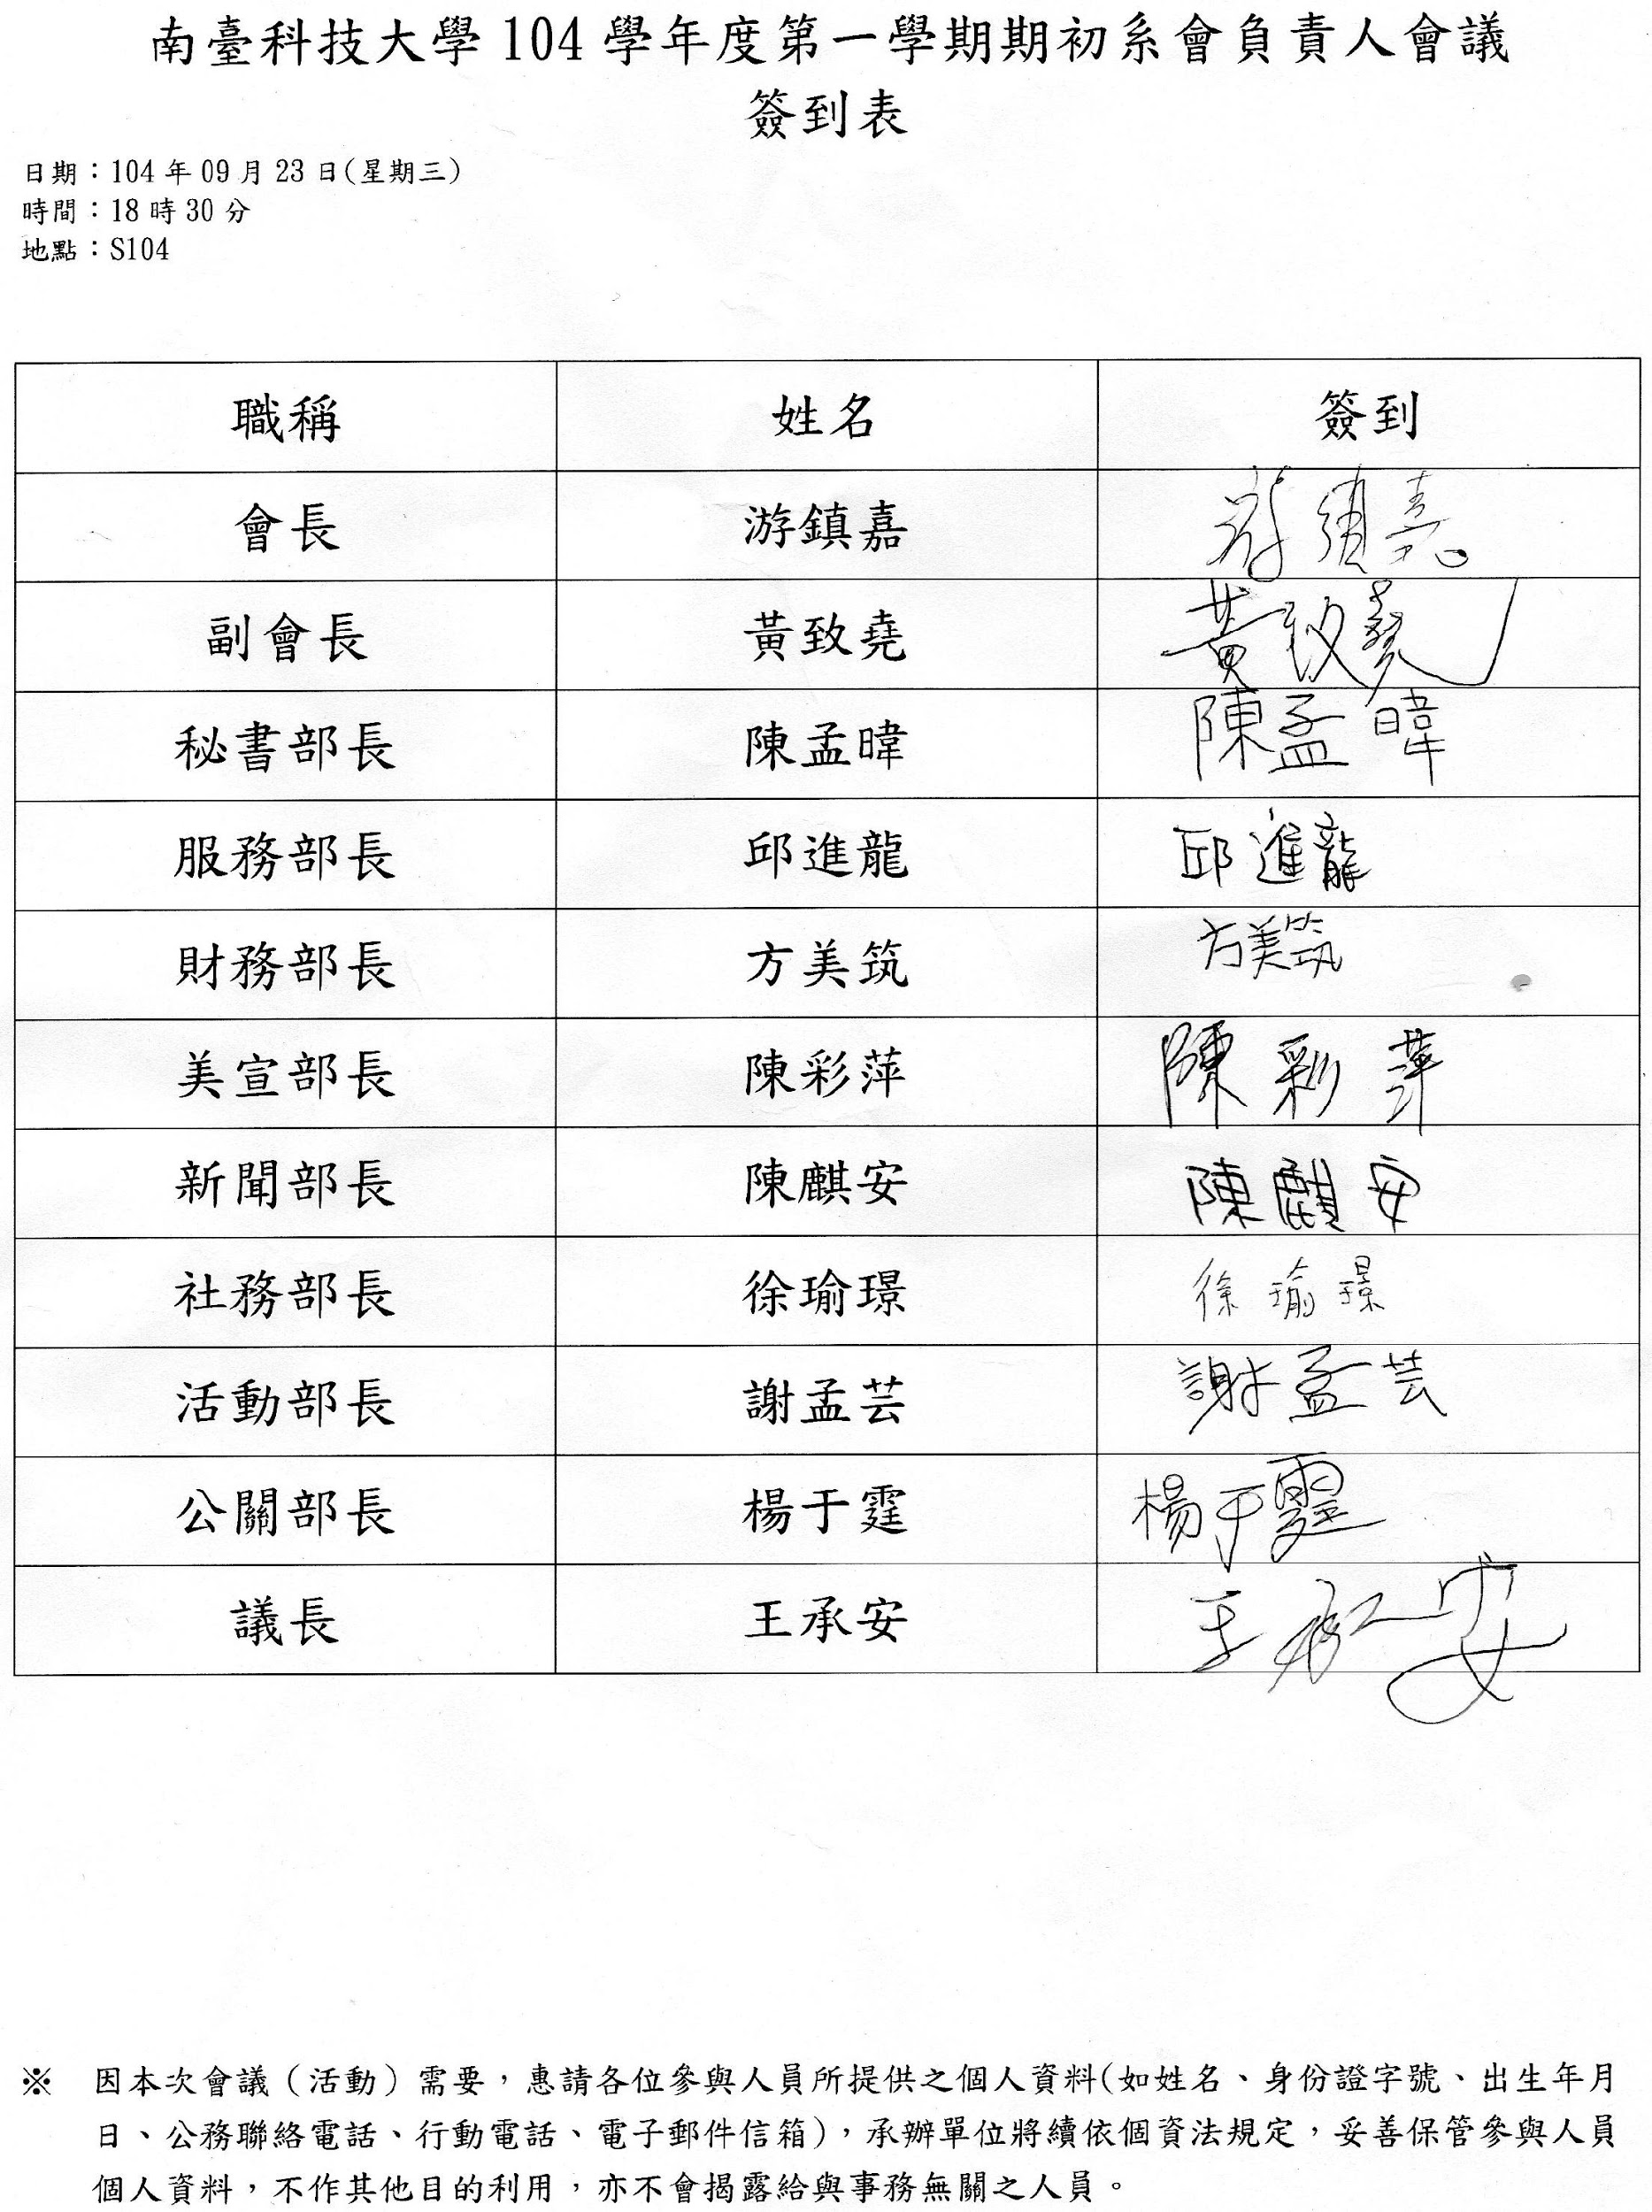 南臺科技大學 104 學年度第一學期期初系會負責人會議
簽到表
日期：104 年 09 月 23 日(星期三)
時間：18 時 30 分
地點：S104
職稱 姓名 簽到
會長 游鎮嘉 游鎮嘉
副會長 黃致堯 黃致堯
秘書部長 陳孟暐 陳孟暐
服務部長 邱進龍 邱進龍
財務部長 方美筑 方美筑
美宣部長 陳彩萍 陳彩萍
新聞部長 陳麒安 陳麒安
社務部長 徐瑜璟 徐瑜璟
活動部長 謝孟芸 謝孟芸
公關部長 楊于霆 楊于霆
議長 王承安 王承安
※ 因本次會議（活動）需要，惠請各位參與人員所提供之個人資料(如姓名、身份證字號、出生年月
日、公務聯絡電話、行動電話、電子郵件信箱)，承辦單位將續依個資法規定，妥善保管參與人員
個人資料，不作其他目的利用，亦不會揭露給與事務無關之人員。